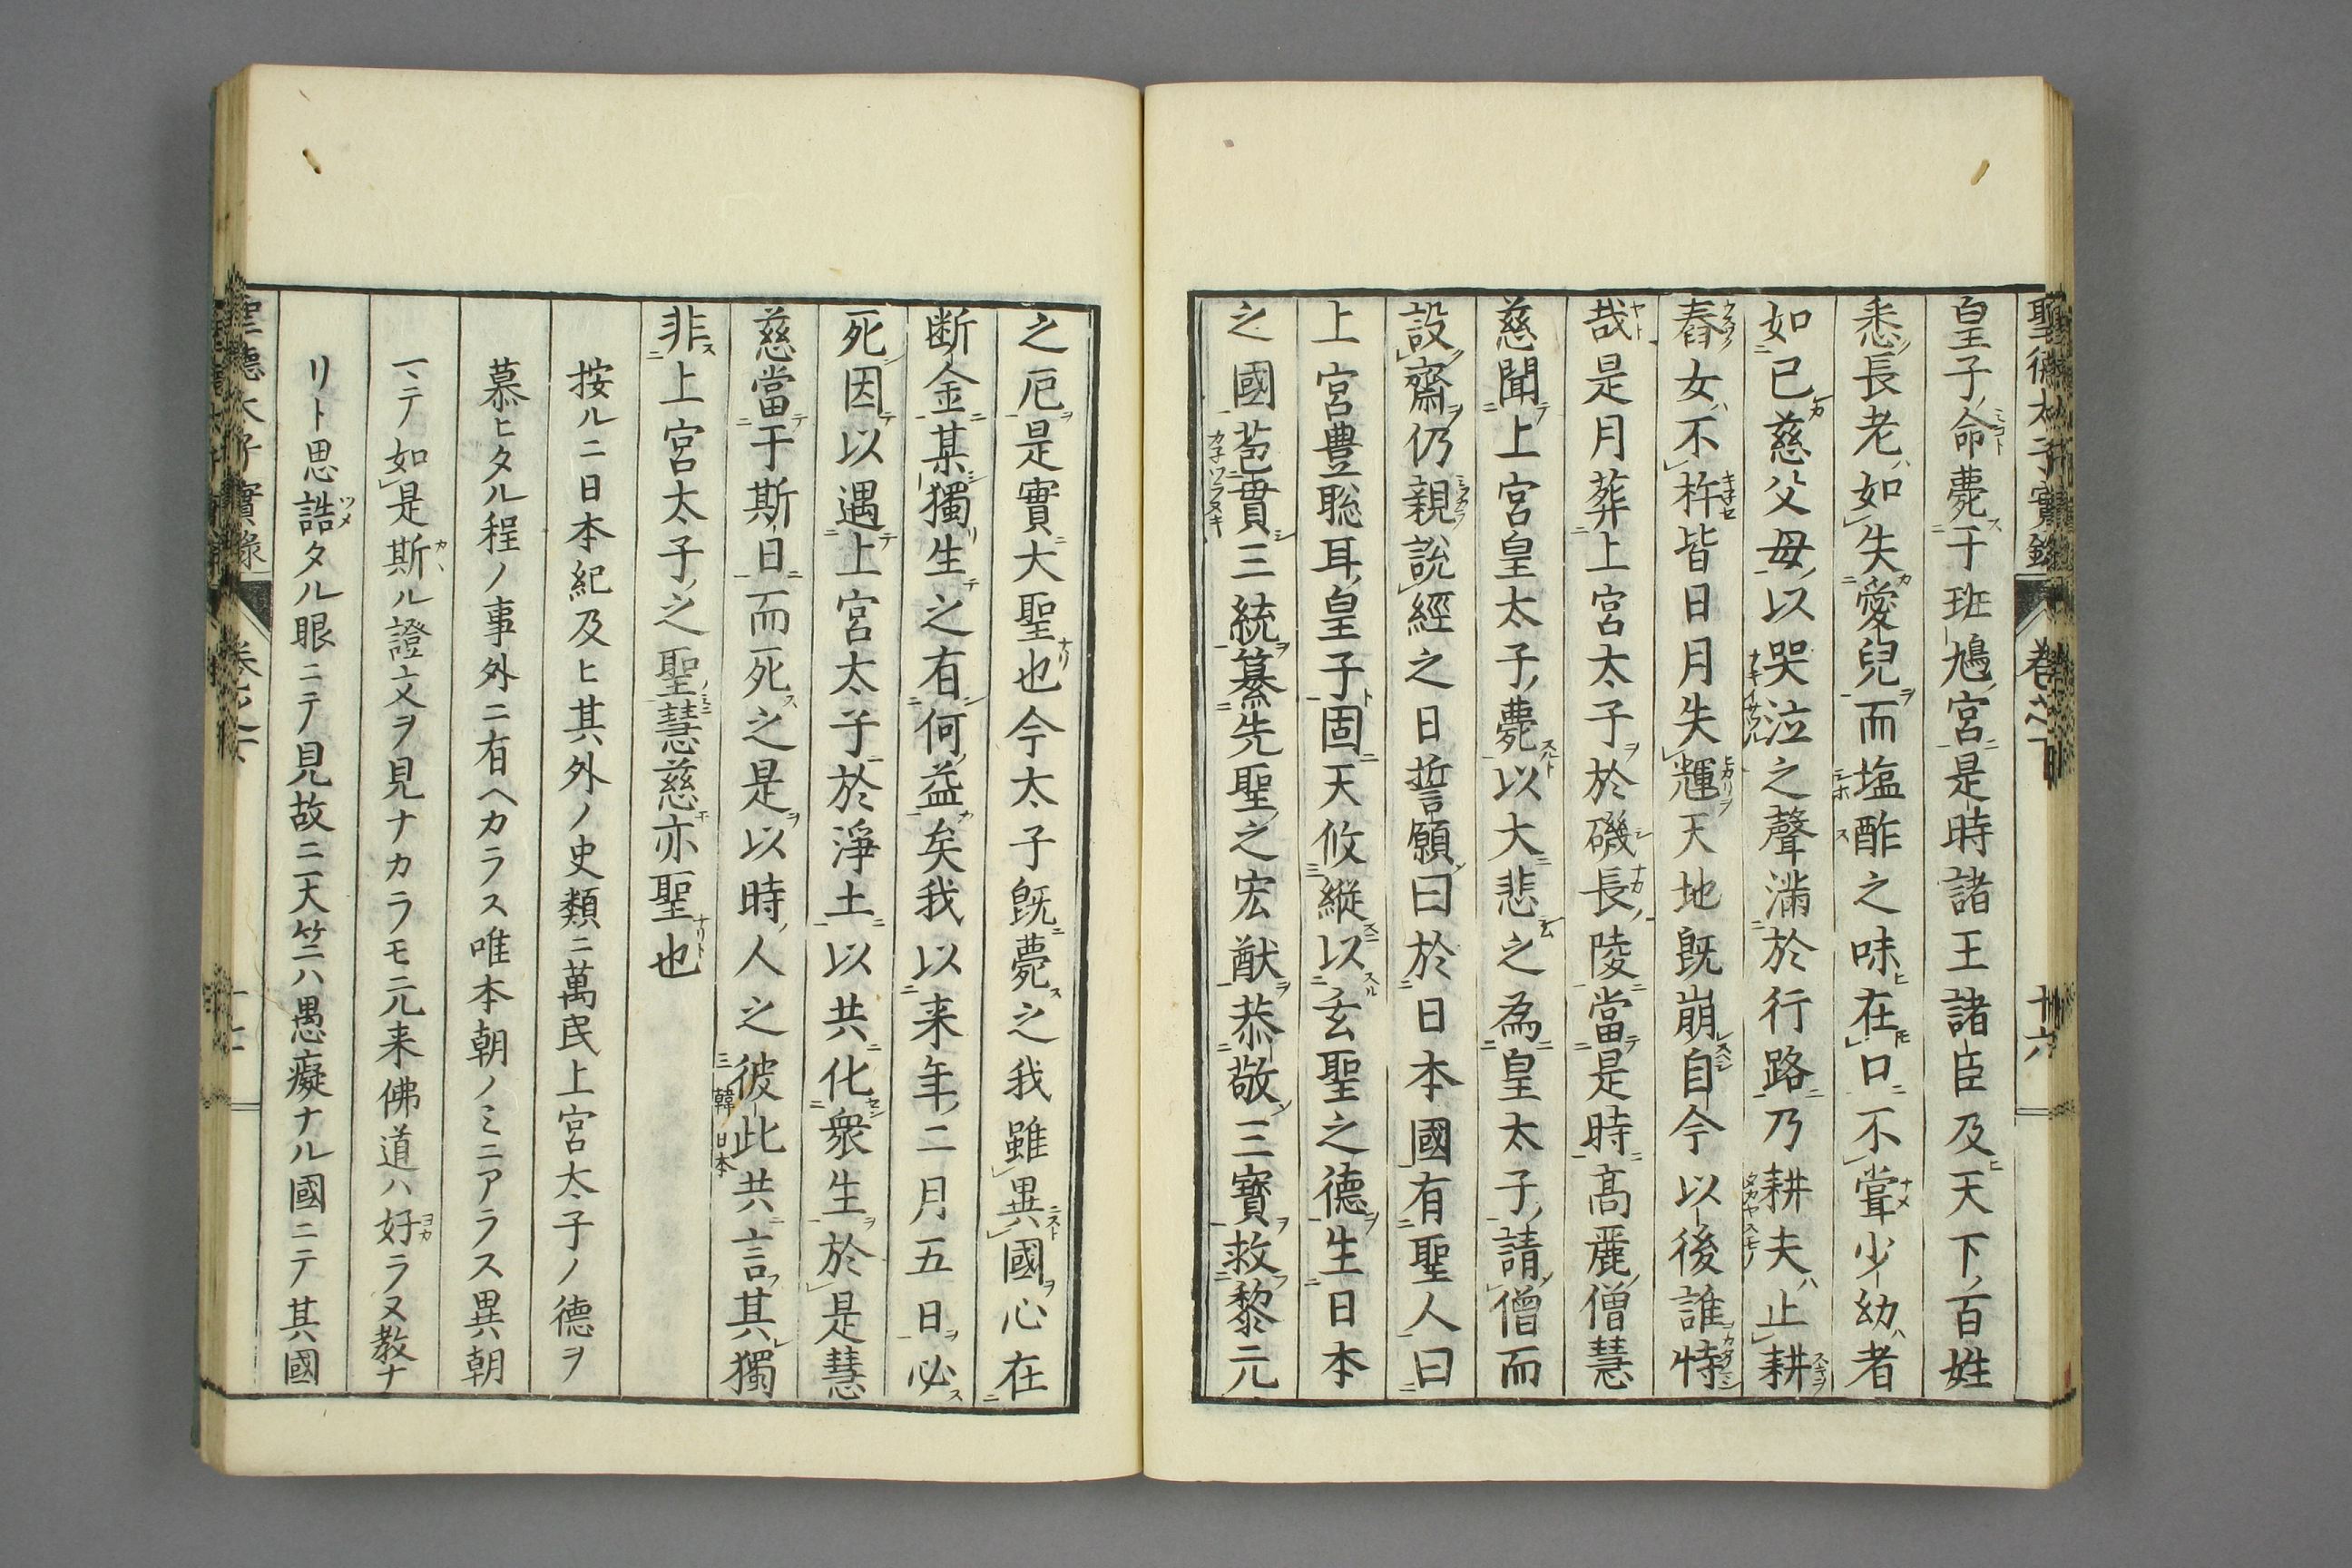 聖德太子實錄
卷之下
十六
皇子命薨于班鳩宮是時諸王諸臣及天下百姓
悉長老如失愛兒而塩酢之味在口不甞少幼者
如已慈父母以哭泣之聲滿於行路乃耕夫止耕
舂女不杵皆日月失輝天地既崩自今以後誰恃
哉是月葬上宮太子於磯長陵當是時髙麗僧慧
慈聞上宮皇太子薨以大悲之為皇太子請僧而
設齋仍親說經之日誓願曰於日本國有聖人曰
上宮豊聡耳皇子固天攸縦以玄聖之德生日本
之國苞貫三統纂先聖之宏猷恭敬三寶救黎元
之厄是實大聖也今太子既薨之我雖異國心在
断金某獨生之有何益矣我以来年二月五日必
死因以遇上宮太子於淨土以共化衆生於是慧
慈當于斯日而死之是以時人之彼此共言其獨
非上宮太子之聖慧慈亦聖也
按ルニ日本紀及ヒ其外ノ史類ニ萬民上宮太子ノ德ヲ
慕ヒタル程ノ事外ニ有ヘカラス唯本朝ノミニアラス異朝
ニテ如是斯ル證文ヲ見ナカラモ元来佛道ハ好ラヌ教ナ
リト思誥タル眼ニテ見故ニ天竺ハ愚癡ナル國ニテ其國
聖德太子實錄